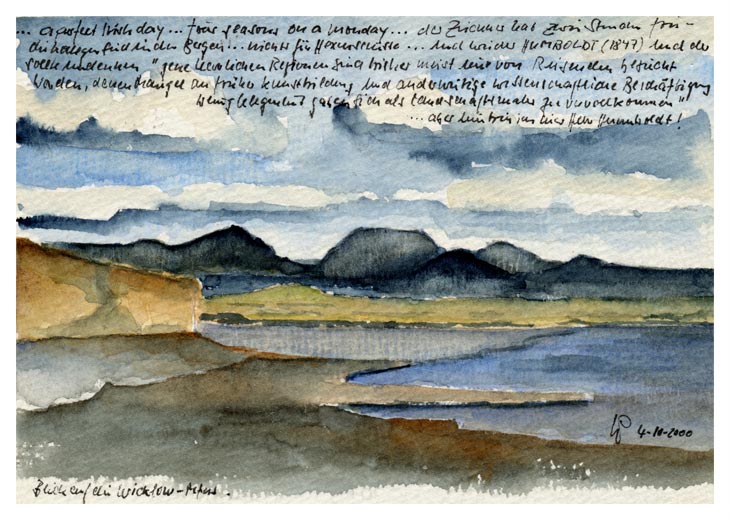 ... a perfect Irish day ... four seasons on a monday ... der Zeichner hat zwei Stunden
in den Bergen ... nichts für ... und wieder HUMBOLDT (1847) und der
"jene herrlichen Regionen sind bisher meist nur von Reisenden besucht
worden, denen Mangel an früher Kunstbildung und anderweitige wissenschaftliche Beschäftigung
wenig Gelegenheit gaben sich als Landschaftsmaler zu vervollkommnen"
... aber hier Herr Humboldt!
4-10-2000
Blick auf die Wicklow-Alpen.